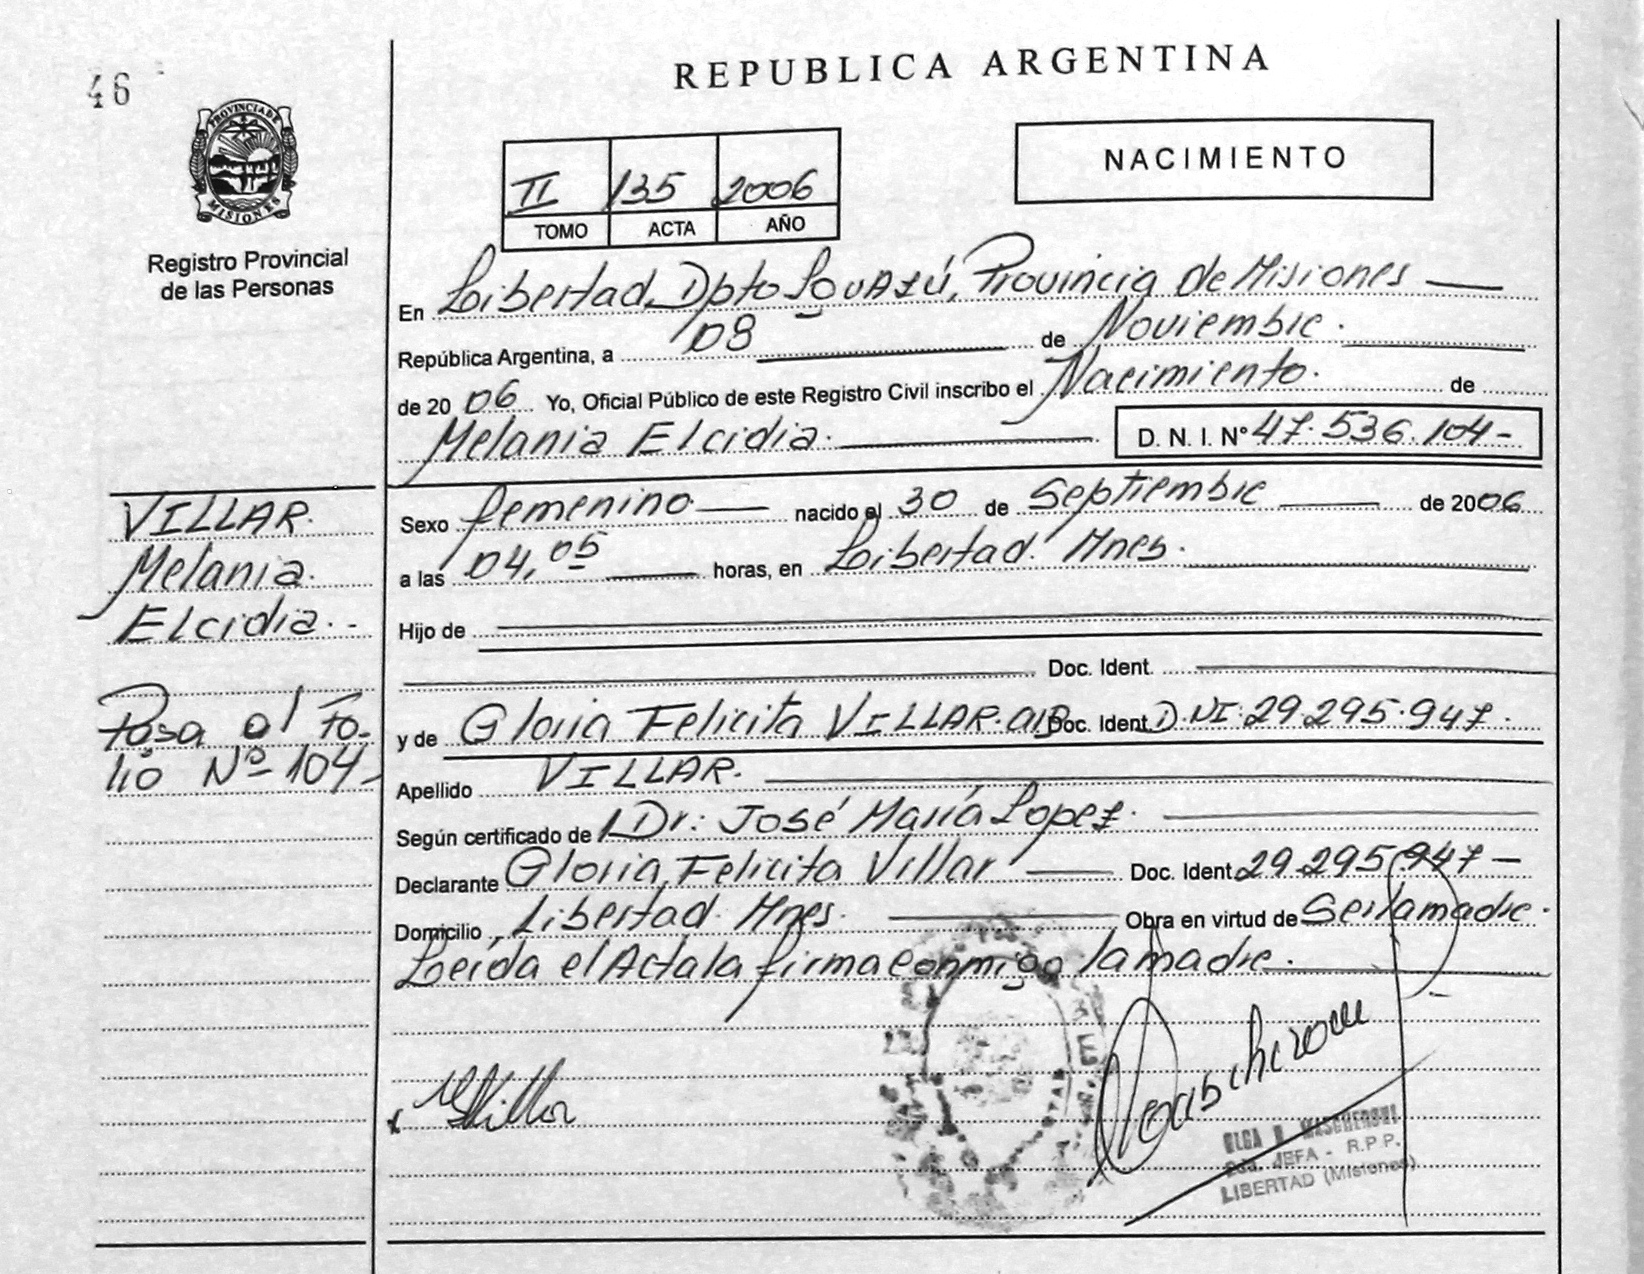 46
REPUBLICA ARGENTINA
PROVINCIA DE
MISIONES
Registro Provincial
de las Personas
II 135 2006
TOMO ACTA AÑO
NACIMIENTO
En Libertad, Dpto Iguazú, Provincia de Misiones
República Argentina, a 08 de Noviembre.
de 2006 Yo, Oficial Público de este Registro Civil inscribo el Nacimiento. de
Melania Elcidia. D. N. I. Nº 47.536.104-
VILLAR.
Melania.
Elcidia..
Sexo femenino nacido el 30 de Septiembre de 2006
a las 04,05 horas, en Libertad. Mnes.
Hijo de
Doc. Ident.
Pasa al Fo-
lio Nº 104-
y de Gloria Felicita VILLAR. Doc. Ident. D.NI: 29.295.947.
Apellido VILLAR.
Según certificado de Dr: José María Lopez.
Declarante Gloria Felicita Villar Doc. Ident 29.295.947-
Domicilio Libertad. Mnes. Obra en virtud de Ser la madre.
Leída el Acta la firma conmigo la madre.
OLGA
JEFA - R.P.P.
LIBERTAD (Misiones)